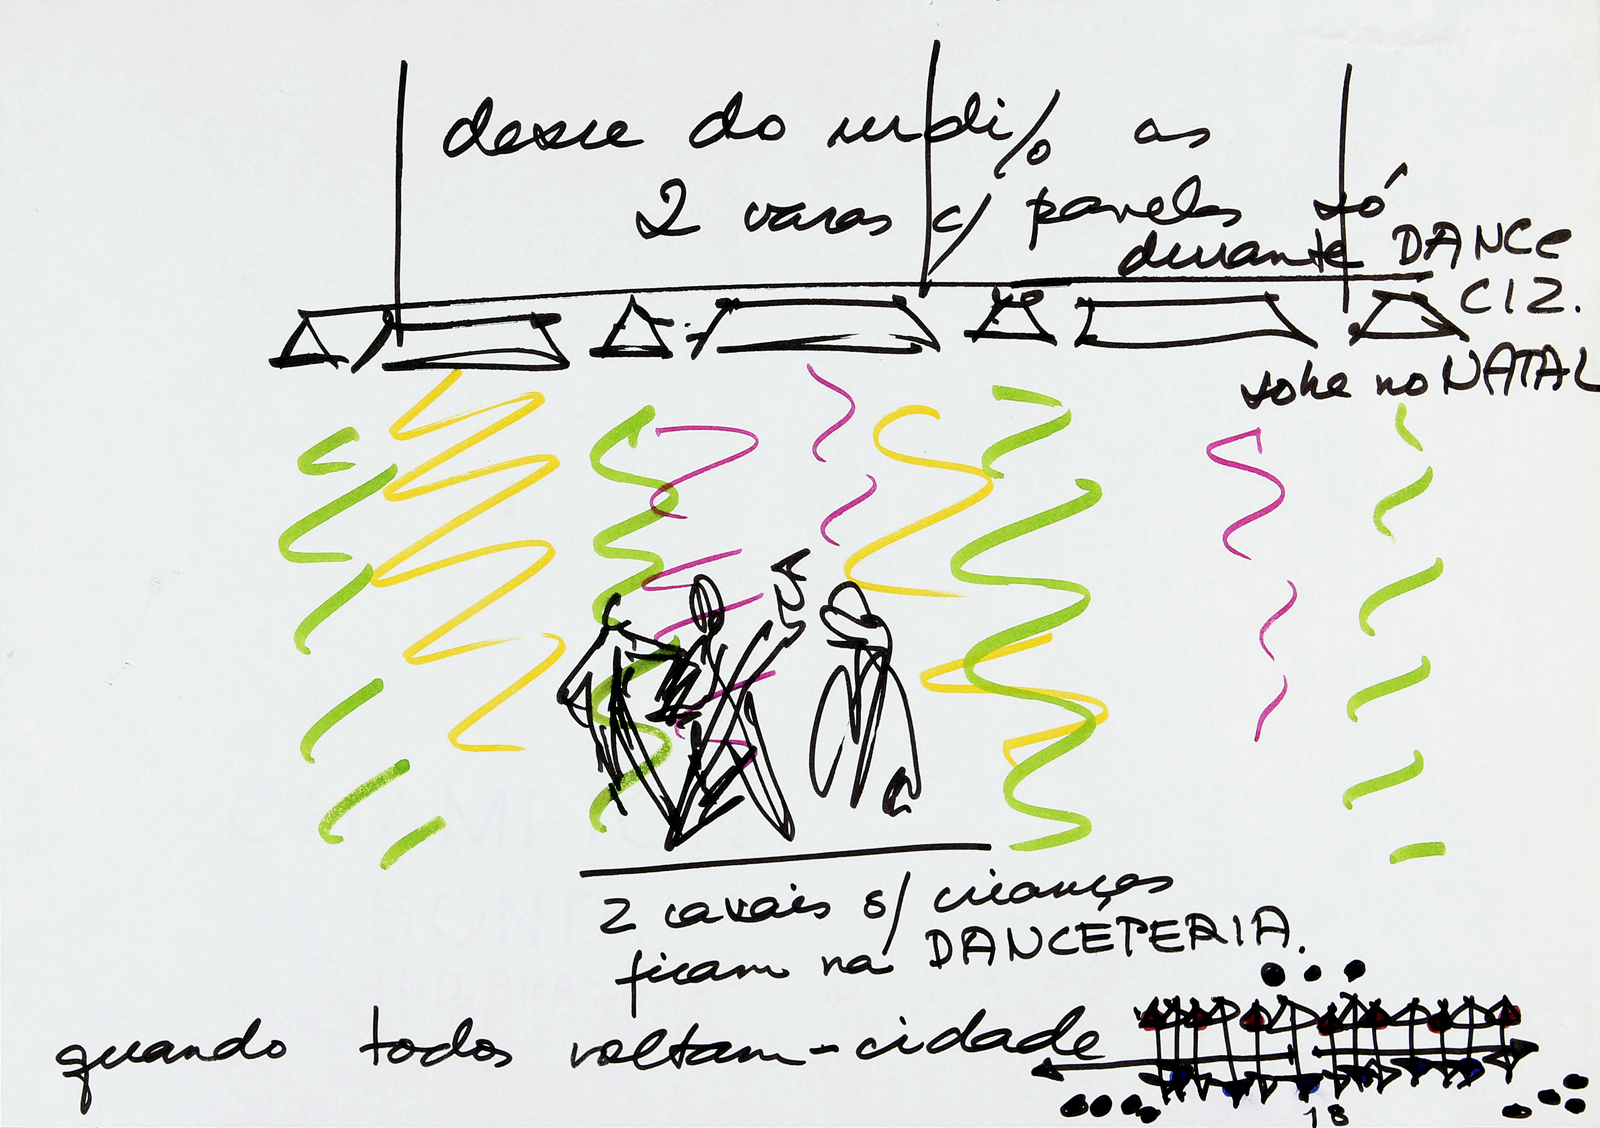 desce do urdi/o as
2 varas c/ panelas só
durante DANCE
CIZ.
sobe no NATAL
2 casais s/ crianças
ficam na DANCETERIA.
quando todos voltam - cidade
18